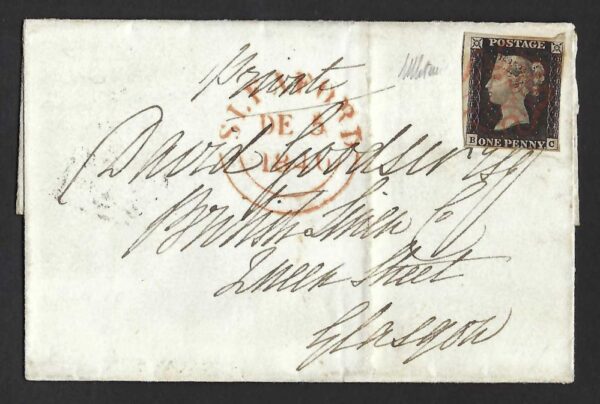 Private
POSTAGE
B ONE PENNY C
DE 5
1840
David
British Linen Co
Queen Street
Glasgow